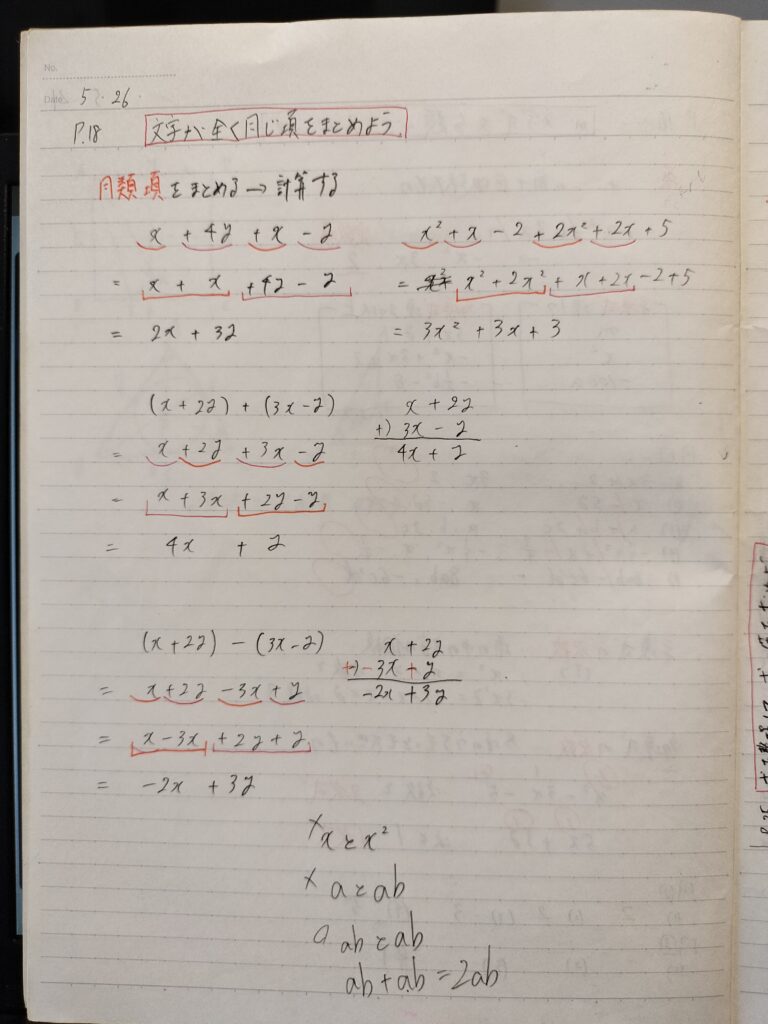 No.
Date 5・26・
P.18 文字が全く同じ項をまとめよう
同類項をまとめる→計算する
x + 4y + x - y
= x + x + 4y - y
= 2x + 3y
x² + x - 2 + 2x² + 2x + 5
= x² + 2x² + x + 2x - 2 + 5
= 3x² + 3x + 3
(x + 2y) + (3x - y)
= x + 2y + 3x - y
= x + 3x + 2y - y
= 4x + y
x + 2y
+) 3x - y
4x + y
(x + 2y) - (3x - y)
= x + 2y - 3x + y
= x - 3x + 2y + y
= -2x + 3y
x + 2y
+) -3x + y
-2x + 3y
× xとx²
× aとab
○ abとab
ab + ab = 2ab